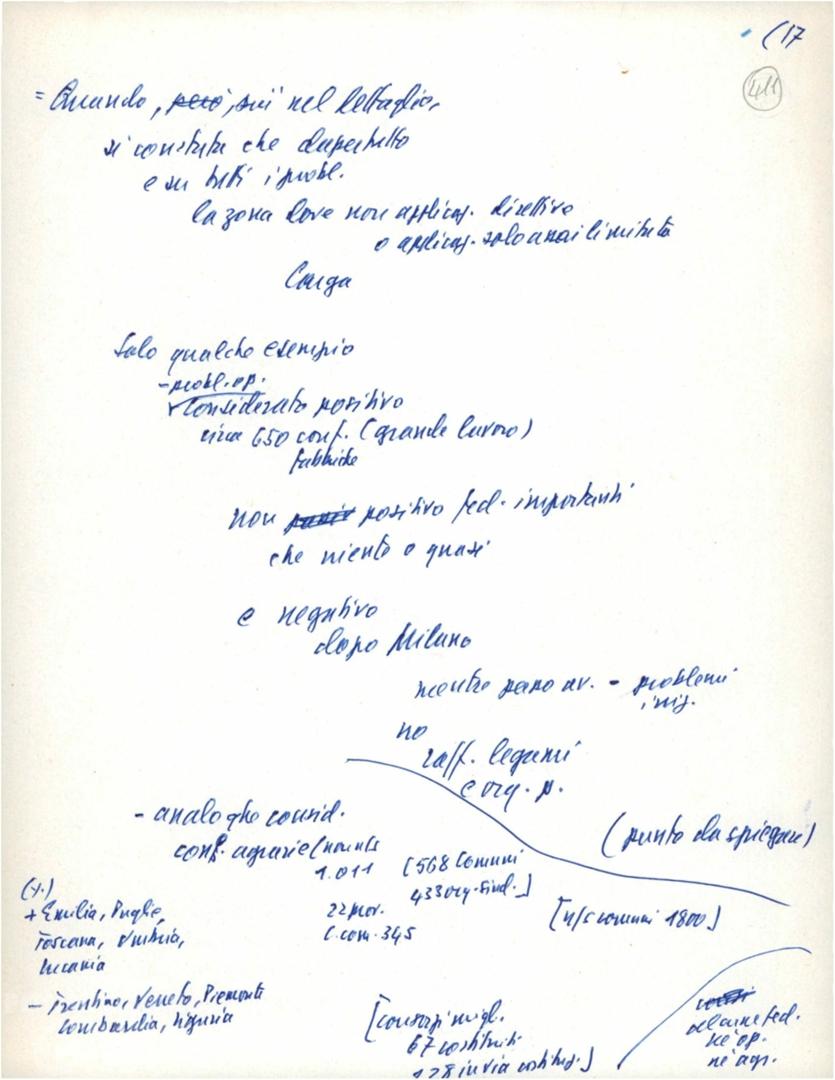 (17
411
= Quando, però, sui nel dettaglio,
si constata che dapertutto
e su tutti i probl.
la zona dove non applicaz. direttive
o applicaz. solo assai limitata
Larga
Solo qualche esempio
- probl. op.
Considerato positivo
circa 650 conf. (grande lavoro)
fabbriche
non positivo fed. importanti
che niente o quasi
e negativo
dopo Milano
mentre passo av. - problemi
iniz.
no
raff. legami
e org. p.
- analoghe consid.
(punto da spiegare)
conf. agrarie (riunite
1.011 [568 Comuni
433 org. find.]
(x.)
+ Emilia, Puglie, 22 prov.
[n/s comuni 1800]
Toscana, Umbria, C. com. 345
Lucania
- Trentino, Veneto, Piemonte
Lombardia, Liguria
[consorzi migl.
67 costituiti
128 in via costituz.]
alcune fed.
né op.
né agr.